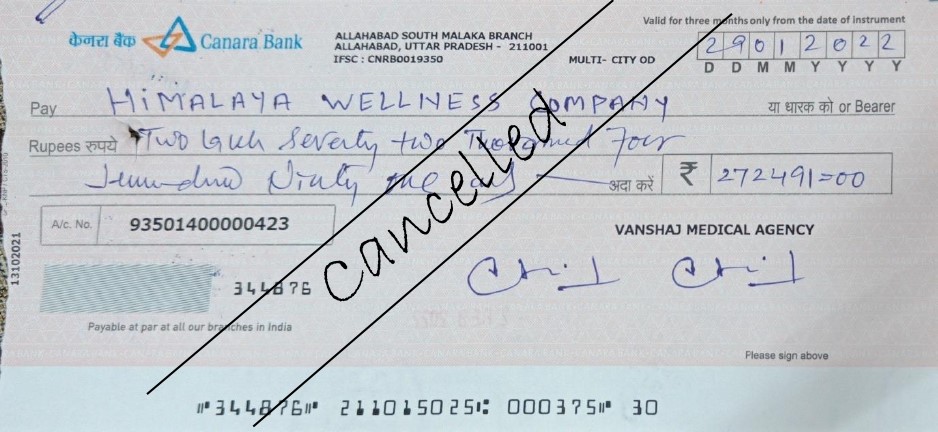 केनरा बैंक Canara Bank
ALLAHABAD SOUTH MALAKA BRANCH
ALLAHABAD, UTTAR PRADESH - 211001
IFSC : CNRB0019350
MULTI- CITY OD
Valid for three months only from the date of instrument
29012022
D D M M Y Y Y Y
Pay HIMALAYA WELLNESS COMPANY या धारक को or Bearer
Rupees रुपये Two Lakh Seventy two Thousand Four
Ninety one अदा करें ₹ 272491=00
A/c. No. 93501400000423
VANSHAJ MEDICAL AGENCY
cancelled
344876
13102021
Payable at par at all our branches in India
Please sign above
⑈344876⑈ 211015025⑆ 000375⑈ 30